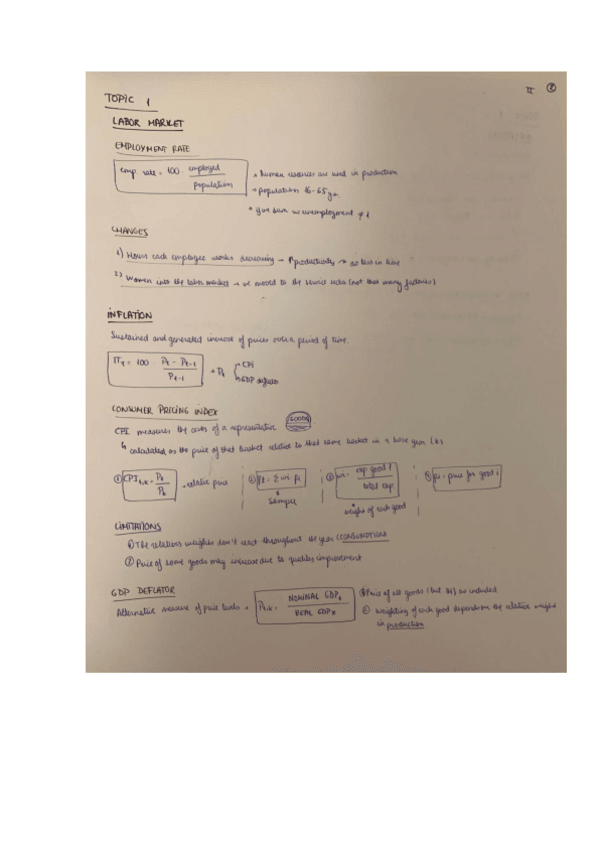 TOPIC 1
II ②
LABOR MARKET
EMPLOYMENT RATE
emp. rate = 100 · employed / population
* human resources are used in production
* population 16-65 y
* unemployment ≠ 1
CHANGES
1) Hours each employee works decreasing → ↑productivity → less
2) Women into the labor market → we moved to the service sector (not that many factories)
INFLATION
Sustained and generalized increase of prices over a period of time.
πt = 100 Pt - Pt-1 / Pt-1
* Pt { CPI
GDP deflator
CONSUMER PRICING INDEX
CPI measures the costs of a representative GOODS
↳ calculated as the price of that basket relative to that same basket in a base year (k)
① CPI t,k = Pt / Pk
relative price
② Pt = Σ wi · pi
③ wi = exp good i / total exp
④ pi = price for good i
Sample
weight of each good
LIMITATIONS
① The relations weights don't react throughout the year (CONSUMPTION)
② Price of some goods may increase due to quality improvement
GDP DEFLATOR
Alternative measure of price levels
Pt,k = NOMINAL GDPt / REAL GDPk
① Price of all goods included
② Weighting of each good depends on the relative weight
in production